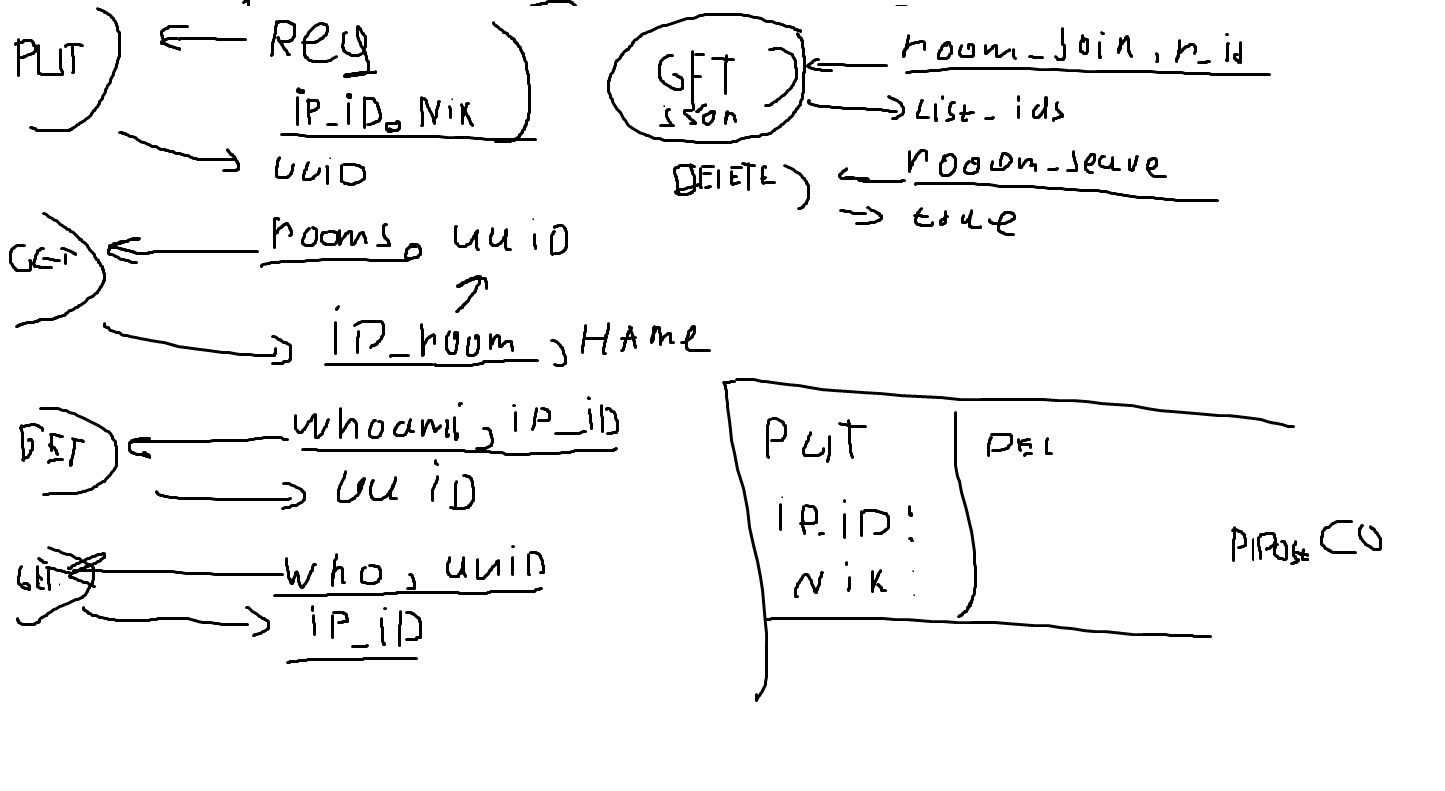 PUT Reg
iP_iD, Nik
uuiD
GET rooms, uuiD
iD_room, HAMe
GET whoami, iP_iD
uuiD
GET who, uuiD
iP_iD
GET room_Join, r_id
json List_ids
DElETE rooom_leave
true
PUT DEL
iP_iD:
Nik:
CO